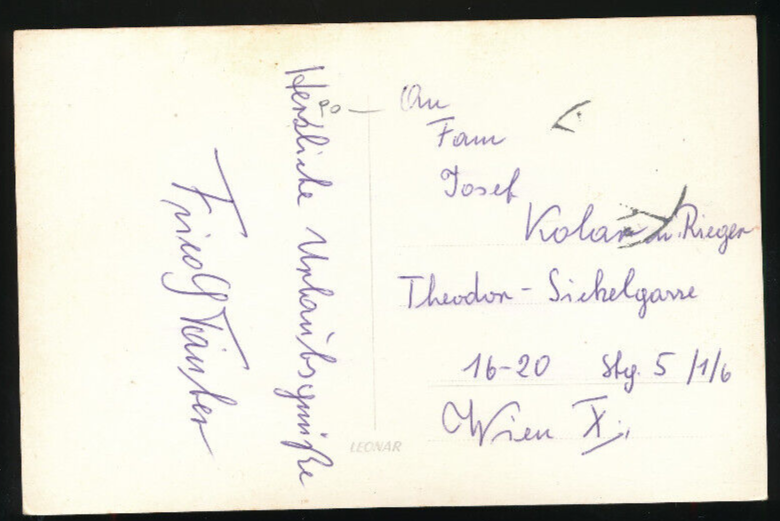 Herzliche Urlaubsgrüße
20 —
An
Fam
Josef
Kolar u. Rieger
Theodor - Sickelgasse
16-20 Stg. 5 /1/6
Wien X.
LEONAR